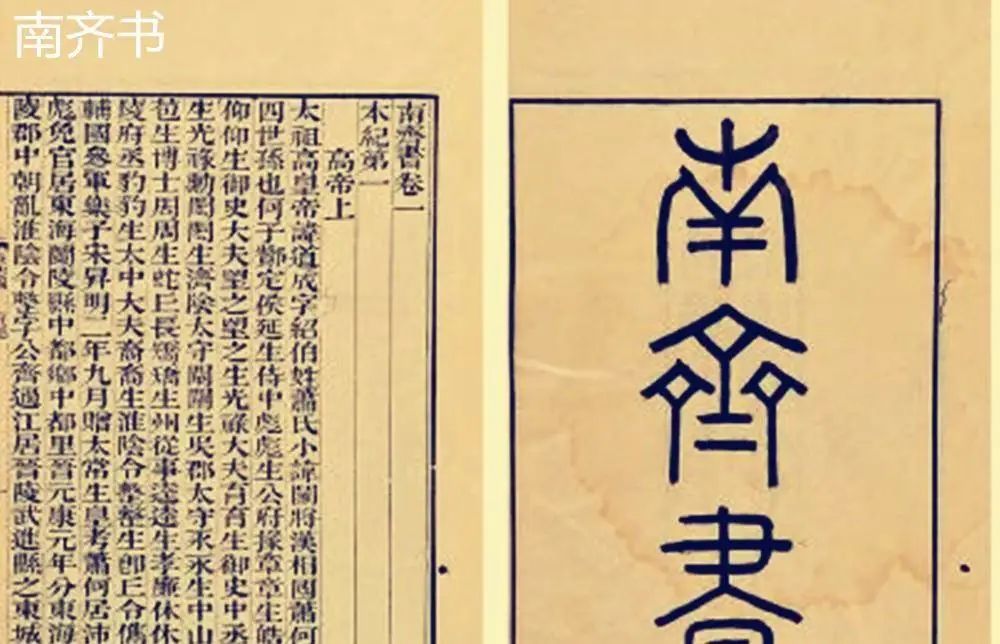 南齐书
南齊書卷一
本紀第一
高帝上
太祖高皇帝諱道成字紹伯姓蕭氏小諱鬭將漢相國蕭何
四世孫也何子酇定侯延生侍中彪彪生公府掾章章生皓
仰仰生御史大夫望之望之生光祿大夫育育生御史中丞
生光祿勳閎閎生濟陰太守闡闡生吳郡太守永永生中山
苞生博士周周生蛇丘長矯矯生州從事逵逵生孝廉休休
陵府丞豹豹生太中大夫裔裔生淮陰令整整生卽丘令儁
輔國參軍樂子宋昇明二年九月贈太常生皇考蕭何居沛
彪免官居東海蘭陵縣中都鄉中都里晉元康元年分東海
陵郡中朝亂淮陰令整字公齊過江居晉陵武進縣之東城
南齊書